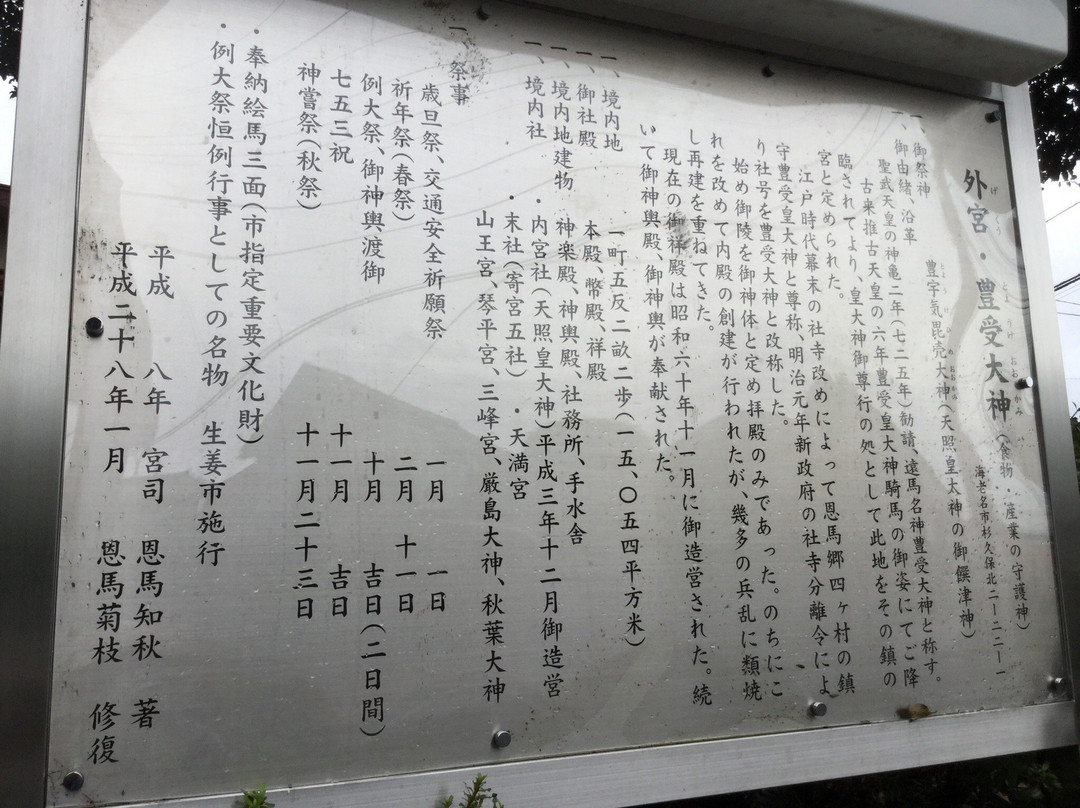 外宮・豊受大神(食物・産業の守護神)
海老名市杉久保北二ー二二ー一
一、御祭神 豊宇気毘売大神(天照皇太神の御饌津神)
一、御由緒、沿革
聖武天皇の神亀二年(七二五年)勧請、遠馬名神豊受大神と称す。
古来推古天皇の六年豊受皇大神騎馬の御姿にてご降
臨されてより、皇大神御尊行の処として此地をその鎮の
宮と定められた。
江戸時代幕末の社寺改めによって恩馬郷四ヶ村の鎮
守豊受皇大神と尊称、明治元年新政府の社寺分離令によ
り社号を豊受大神と改称した。
始め御陵を御神体と定め拝殿のみであった。のちにこ
れを改めて内殿の創建が行われたが、幾多の兵乱に類焼
し再建を重ねてきた。
現在の御祥殿は昭和六十年十一月に御造営された。続
いて御神輿殿、御神輿が奉献された。
一、境内地 一町五反二畝二歩(一五、〇五四平方米)
一、御社殿 本殿、幣殿、祥殿
一、境内地建物 神楽殿、神輿殿、社務所、手水舎
一、境内社 ・内宮社(天照皇大神)平成三年十二月御造営
・末社(寄宮五社)・天満宮
山王宮、琴平宮、三峰宮、厳島大神、秋葉大神
一、祭事
歳旦祭、交通安全祈願祭 一月 一日
祈年祭(春祭) 二月 十一日
例大祭、御神輿渡御 十月 吉日(二日間)
七五三祝 十一月 吉日
神嘗祭(秋祭) 十一月二十三日
・奉納絵馬三面(市指定重要文化財)
・例大祭恒例行事としての名物 生姜市施行
平成 八年 宮司 恩馬知秋 著
平成二十八年一月 恩馬菊枝 修復